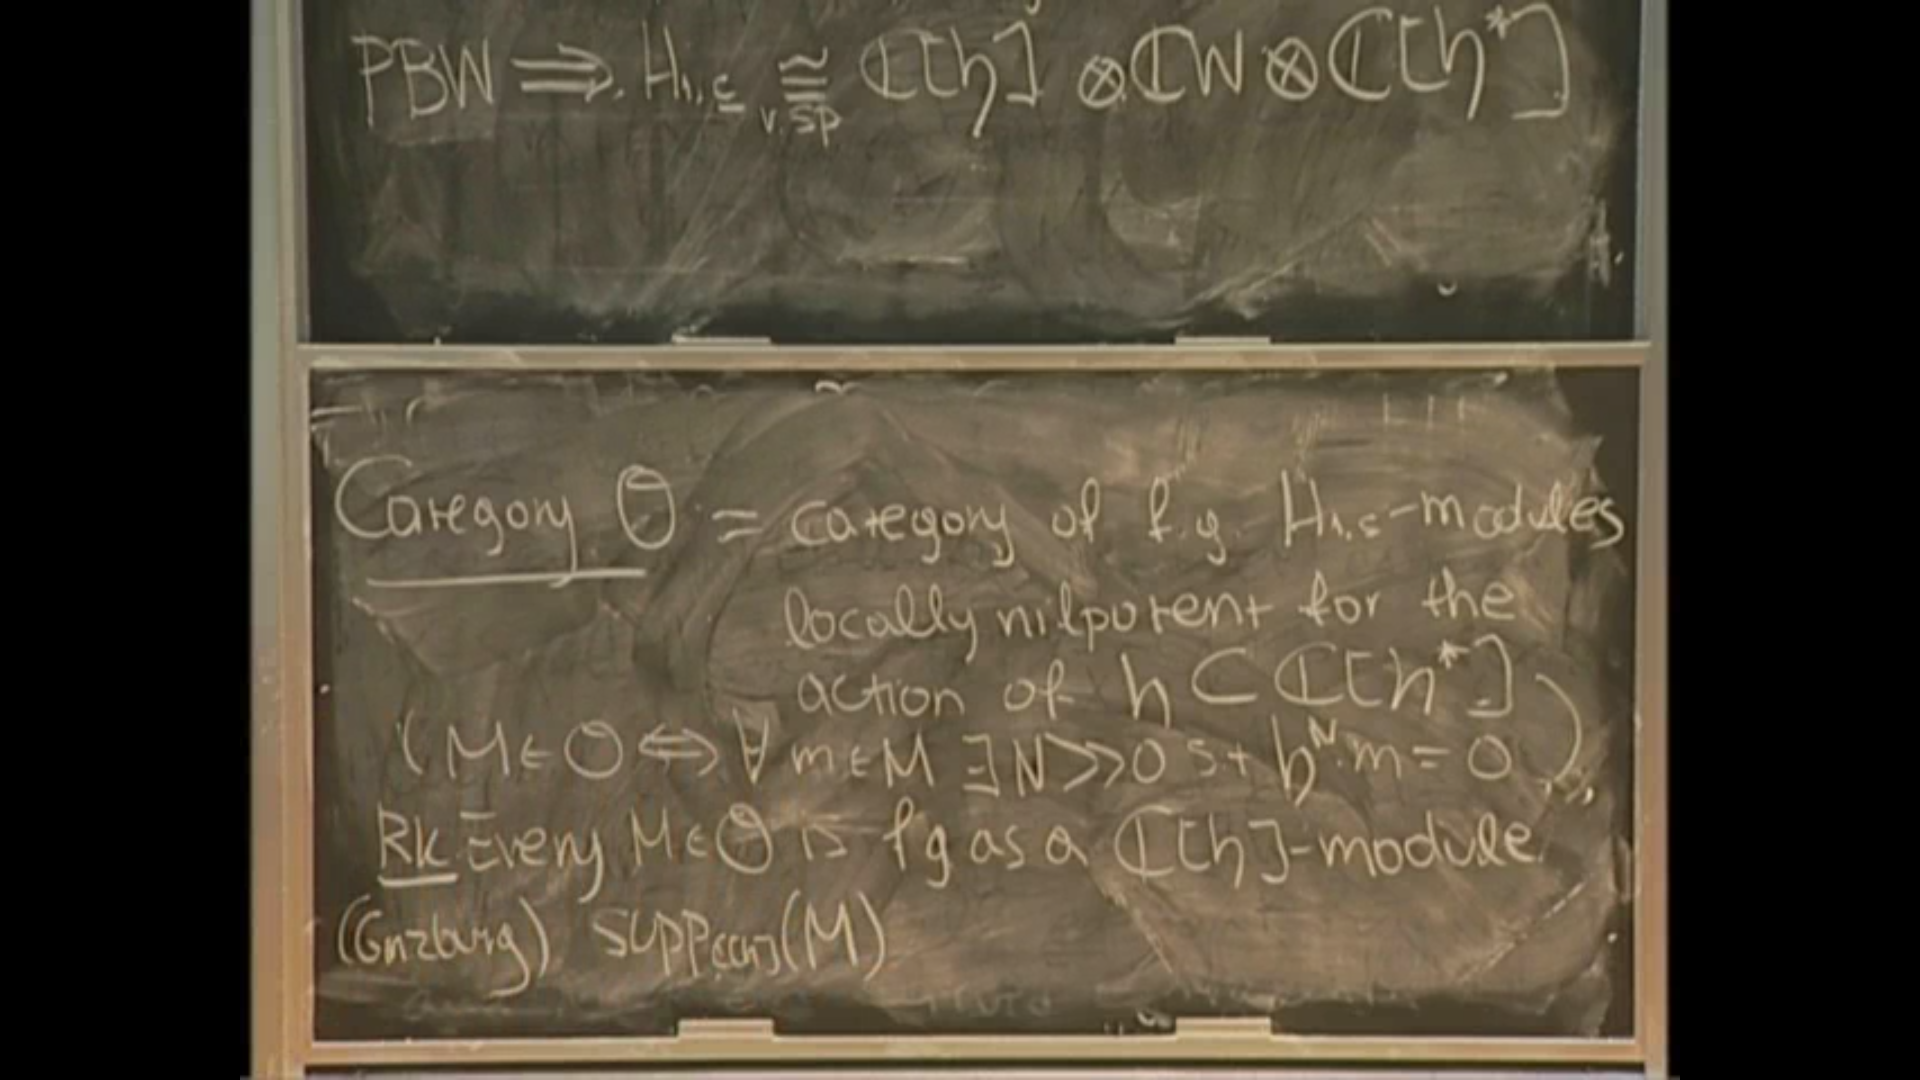 PBW ⟹ H₁,c ≅ v.sp ℂ[𝔥] ⊗ ℂW ⊗ ℂ[𝔥*]
Category O = category of f.g. H₁,c-modules
locally nilpotent for the
action of 𝔥 ⊂ ℂ[𝔥*]
(M∈O ⟺ ∀ m∈M ∃N>>0 s.t 𝔥ᴺ·m = 0).
Rk Every M∈O is fg as a ℂ[𝔥]-module.
(Ginzburg) supp ℂ[𝔥](M)